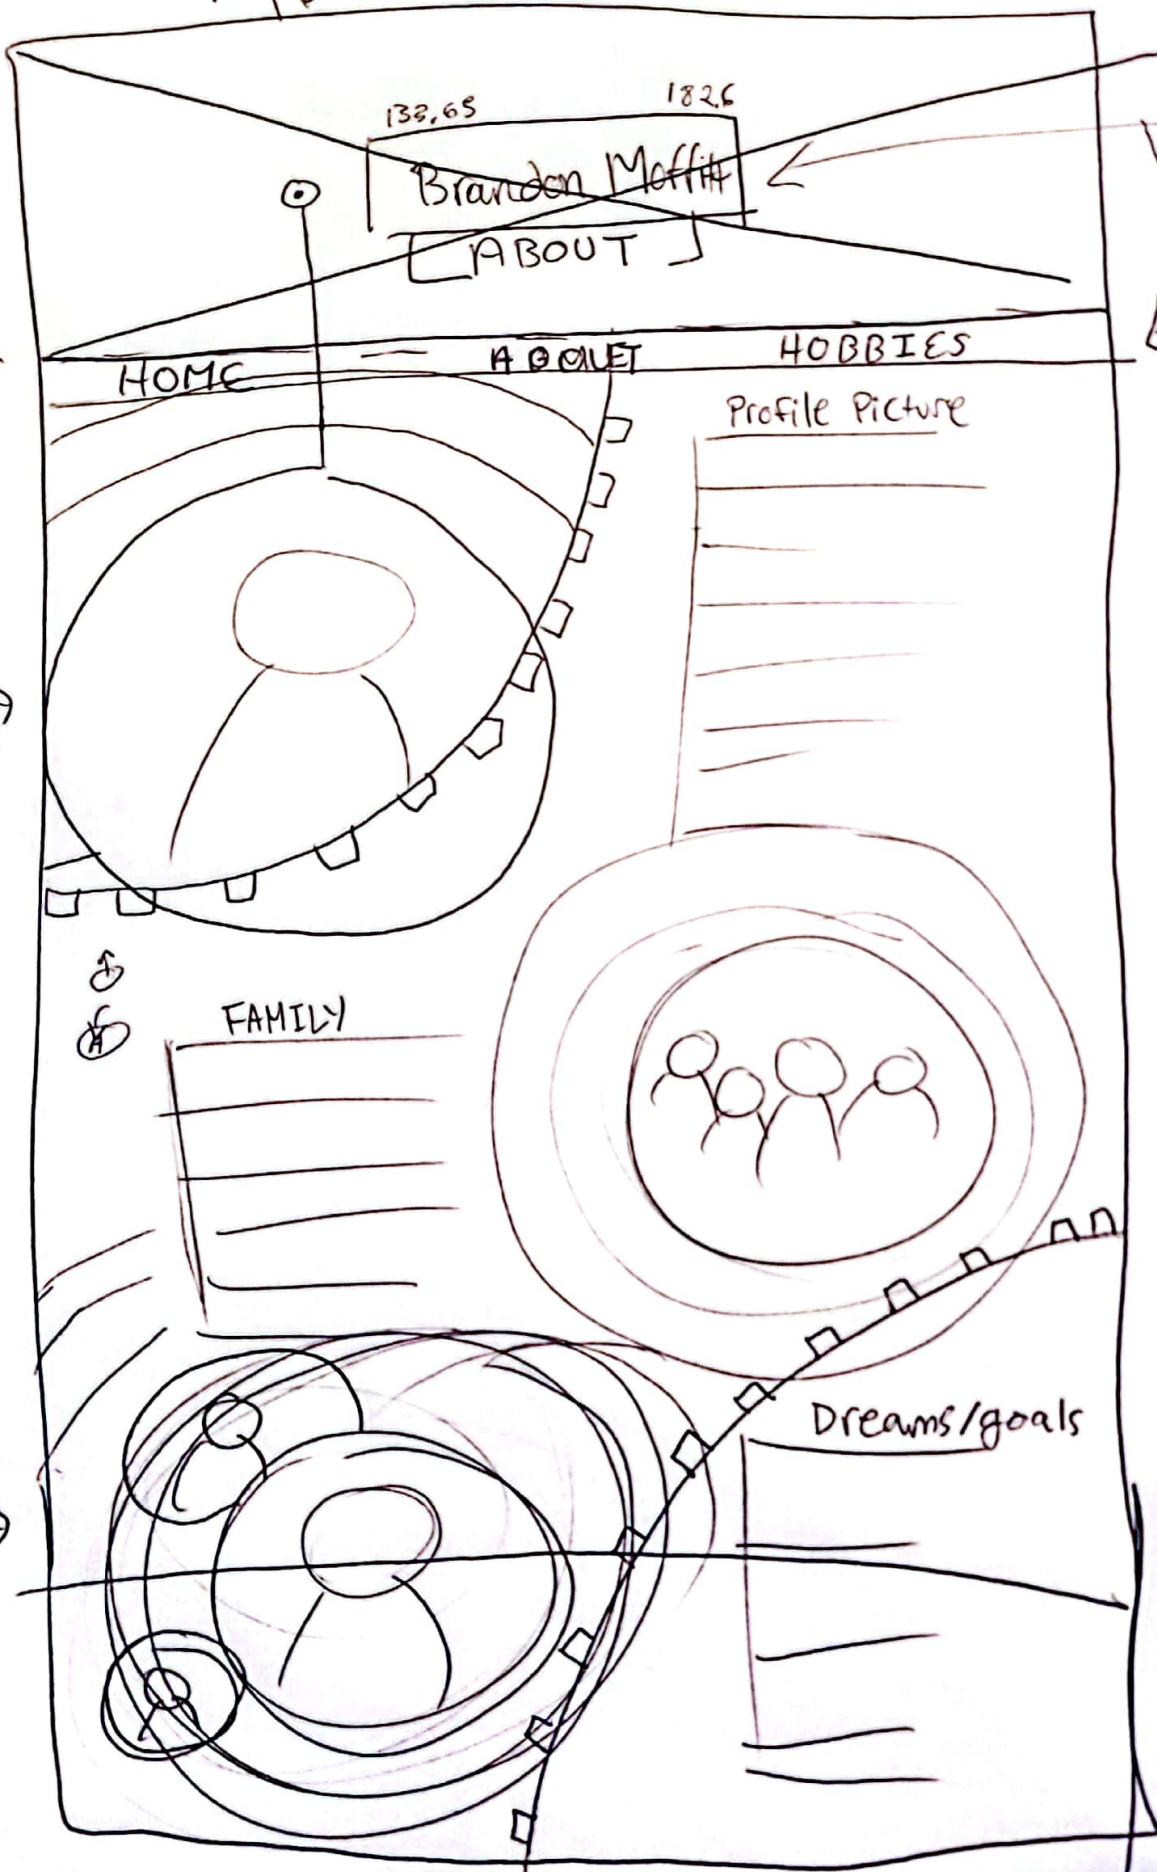 133.65 182.6
Brandon Moffitt
ABOUT
HOME ABOUT HOBBIES
Profile Picture
FAMILY
Dreams/goals